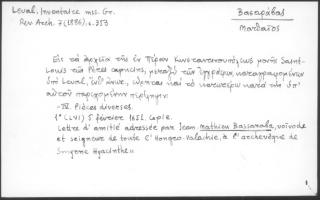 Leval, Inventaire mss. Gr.
Rev. Arch. 7 (1886), σ. 353
Βασαράβας
Ματθαῖος
Εἰς τὰ ἀρχεῖα τῆς ἐν Πέραν Κωνσταντινουπόλεως μονῆς Saint-
Louis τῶν Pères capucins, μεταξὺ τῶν ἐγγράφων καταγραφομένων
ὑπὸ Leval, ὑπ' ὄψιν, εὕρηται καὶ τὸ κατωτέρω κατὰ τὴν ὑπ'
αὐτοῦ παρεχομένην περίληψιν:
-IV. Pièces diverses.
1° (LVI) 5 février 1651. Copie.
Lettre d'amitié adressée par Jean Mathieu Bassaraba, voïvode
et seigneur de toute l'Hongro-Valachie, à l'archevêque de
Smyrne Hyacinthe»